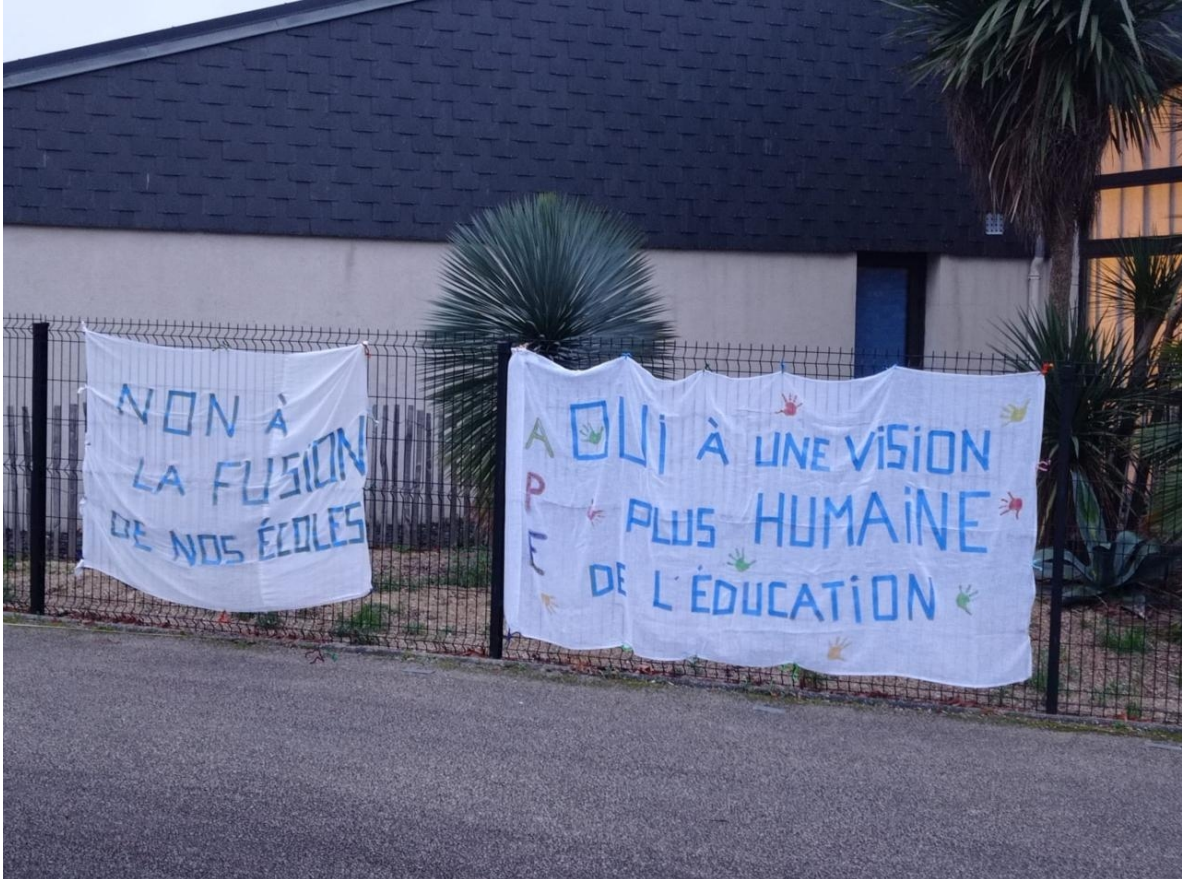 NON À
LA FUSION
DE NOS ÉCOLES
APE
OUi À UNE ViSiON
PLUS HUMAiNE
DE L'ÉDUCATiON